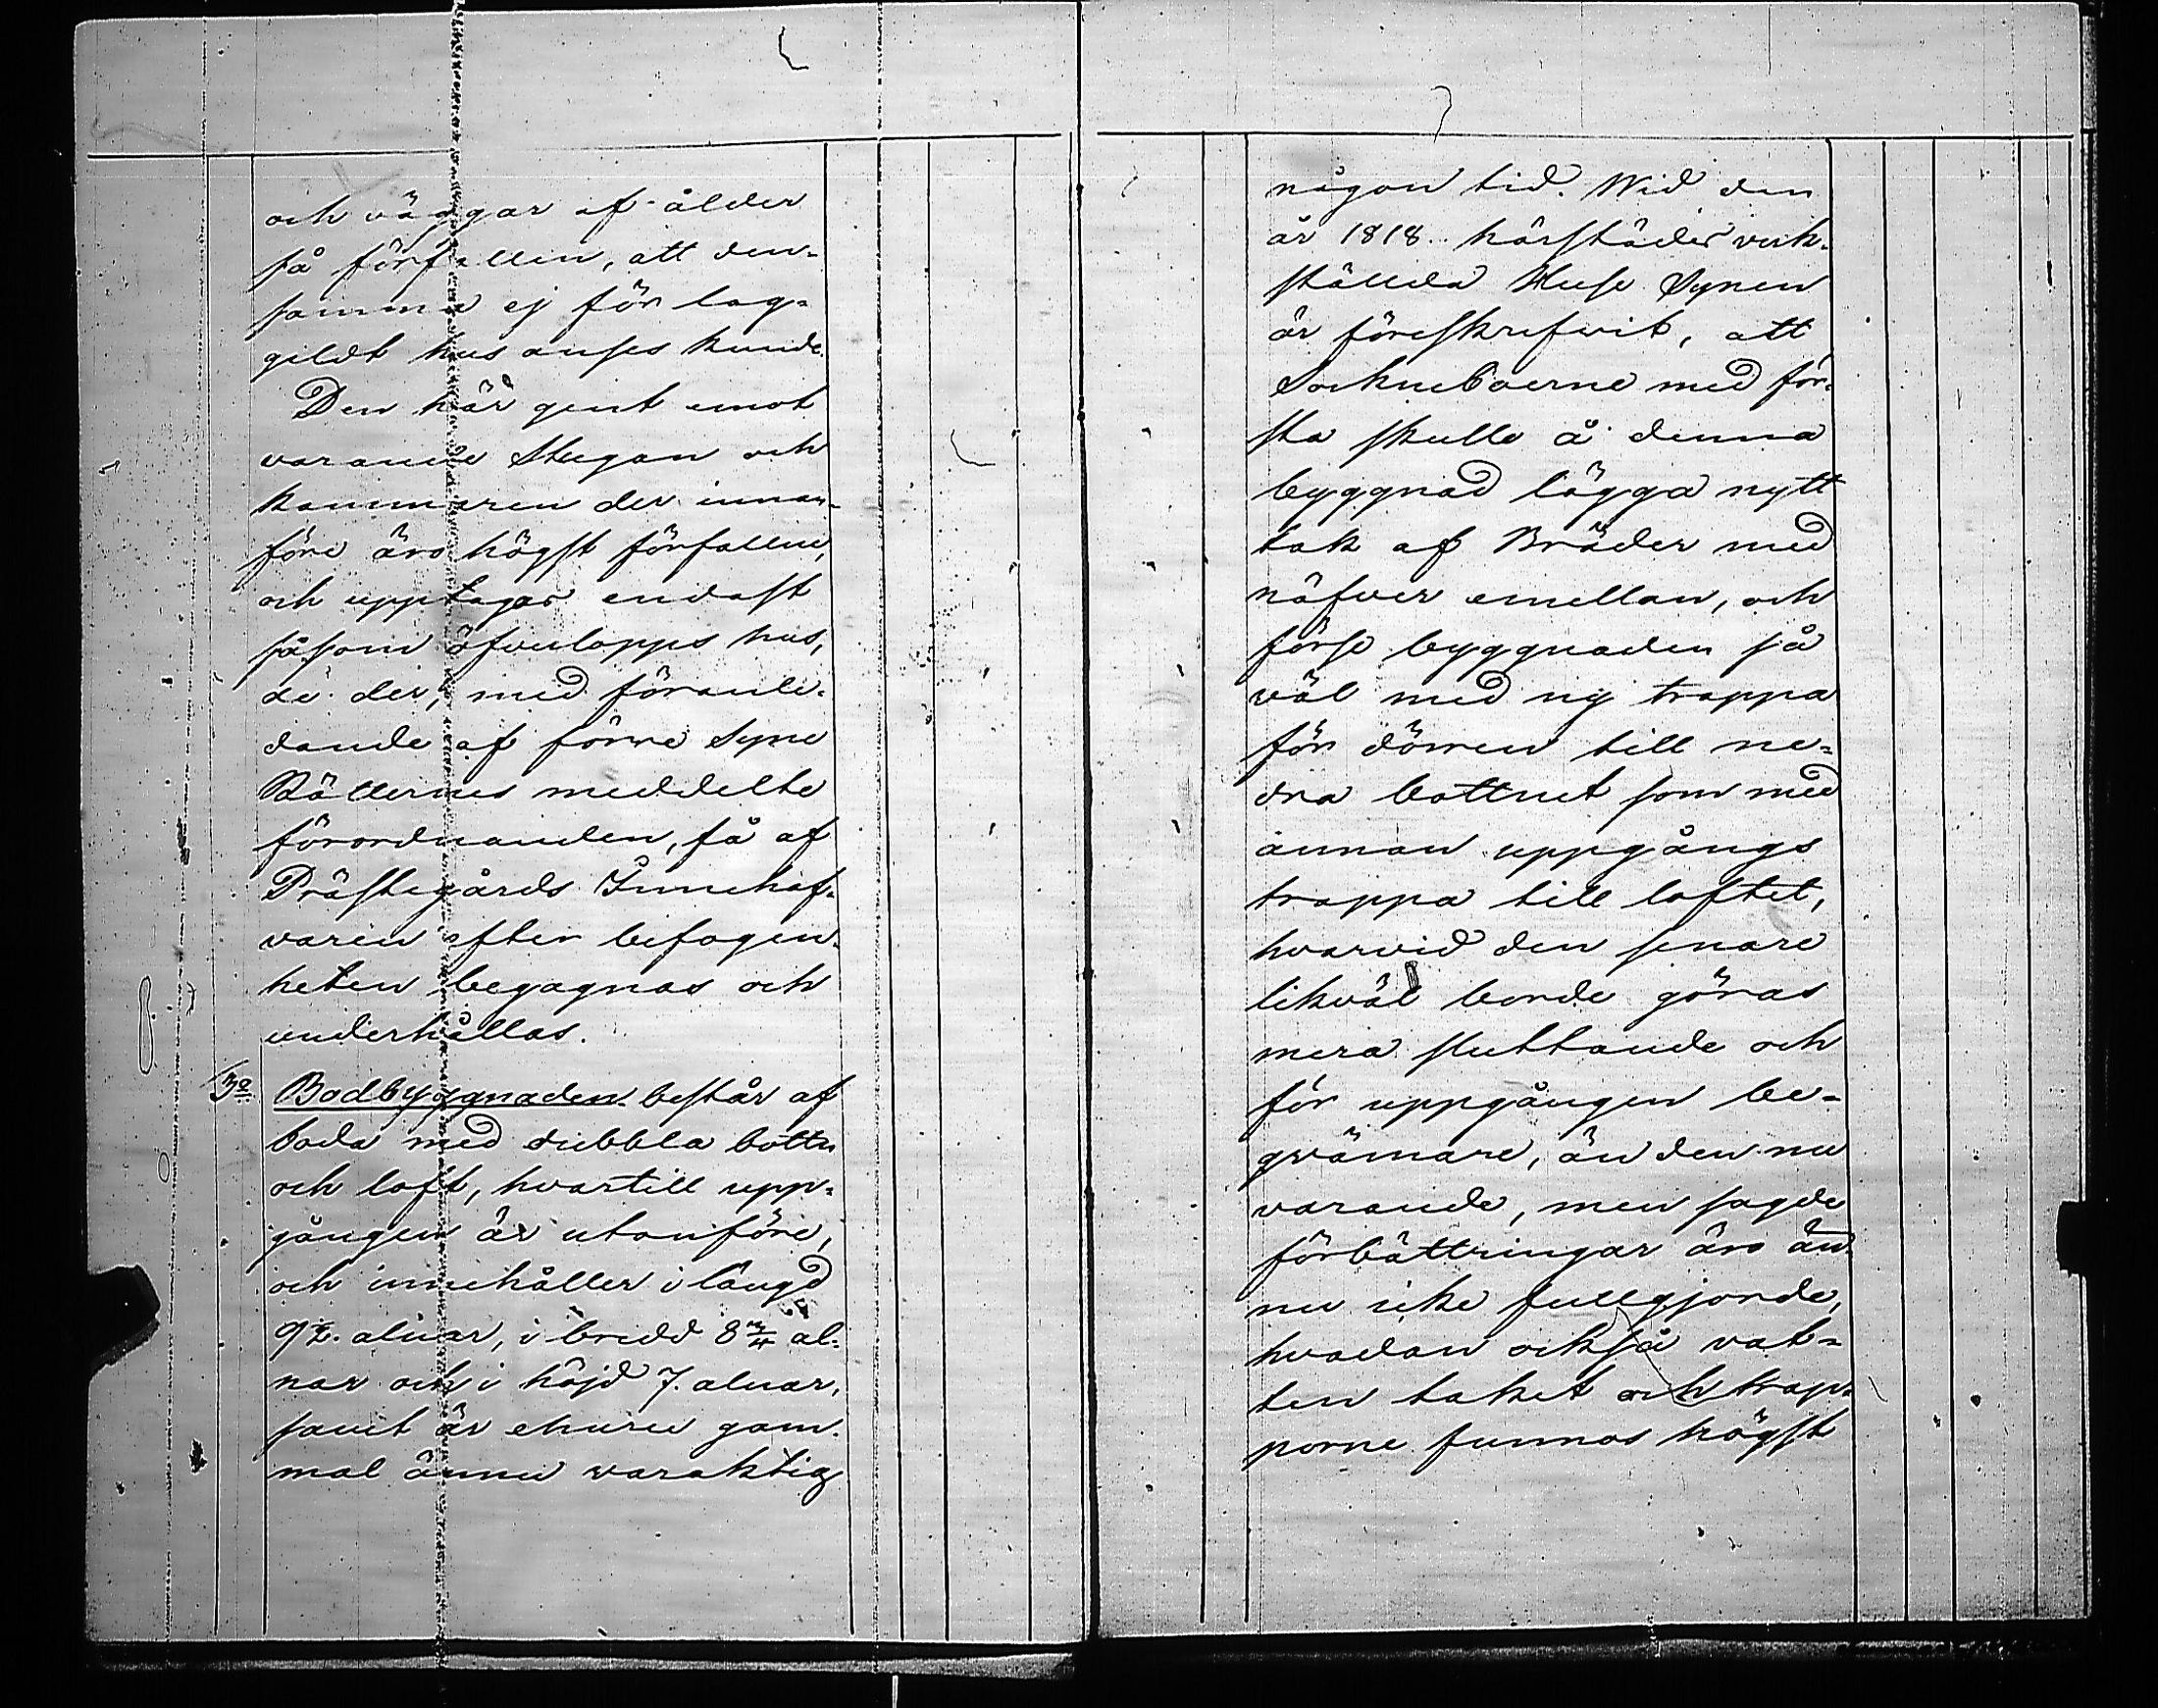 och väggar af ålder
så förfallen, att den-
samma ej för lag-
gildt hus anses kunde.
Den här gent emot
varande Stugan och
kammaren der innan-
före äro högst förfallne,
och upptagas endast
såsom öfverlopps hus,
de der, med föranle-
dande af förre Syne
Rätternes meddelte
förordnanden, få af
Prästegårds Innehaf-
varen efter befogen-
heten begagnas och
underhållas.
3o Bodbyggnaden består af
boda med dubbla bottn
och loft, hvartill upp-
gången är utanföre,
och innehåller i längd
9½. alnar, i bredd 8¾ al-
nar och i höjd 7. alnar,
samt är ehuru gam-
mal ännu varaktig
någon tid. Wid den
år 1818. härstädes verk-
ställda Huse Synen
är föreskrefvit, att
Sockneboerne med för-
sta skulle å denna
byggnad lägga nytt
tak af Bräder med
näfver emellan, och
förse byggnaden så
väl med ny trappa
för dörren till ne-
dra bottnet som med
annan uppgångs
trappa till loftet,
hvarvid den senare
likväl borde göras
mera sluttande och
för uppgången be-
qvämare, än den nu
varande, men sagde
förbättringar äro än
nu icke fullgjorde,
hvadan också vat-
ten taket och trap-
porne funnos högst